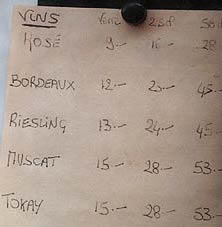 VINS Verre 25cl 50cl
ROSÉ 9.— 16 — 28
BORDEAUX 12.— 23.— 45.—
RIESLING 13.— 24.— 45.
MUSCAT 15 — 28.— 53.—
TOKAY 15.— 28 — 53.—